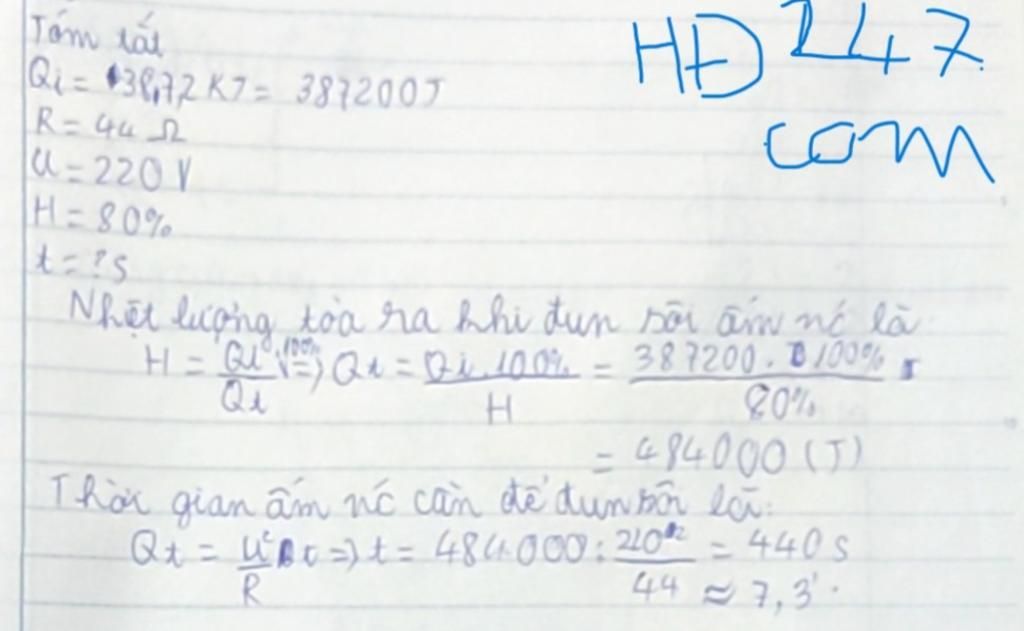 Tóm tắt
HĐ 247
com
Qi = 38,72 KJ = 387200J
R = 44 Ω
U = 220 V
H = 80%
t = ? s
Nhiệt lượng tỏa ra khi đun sôi ấm nc là
H = Qi/Qt .100% => Qt = Qi.100%/H = 387200.100%/80%
= 484000 (J)
Thời gian ấm nc cần để đun sôi là:
Qt = U²/R t => t = 484000 : 220²/44 = 440 s
≈ 7,3'.